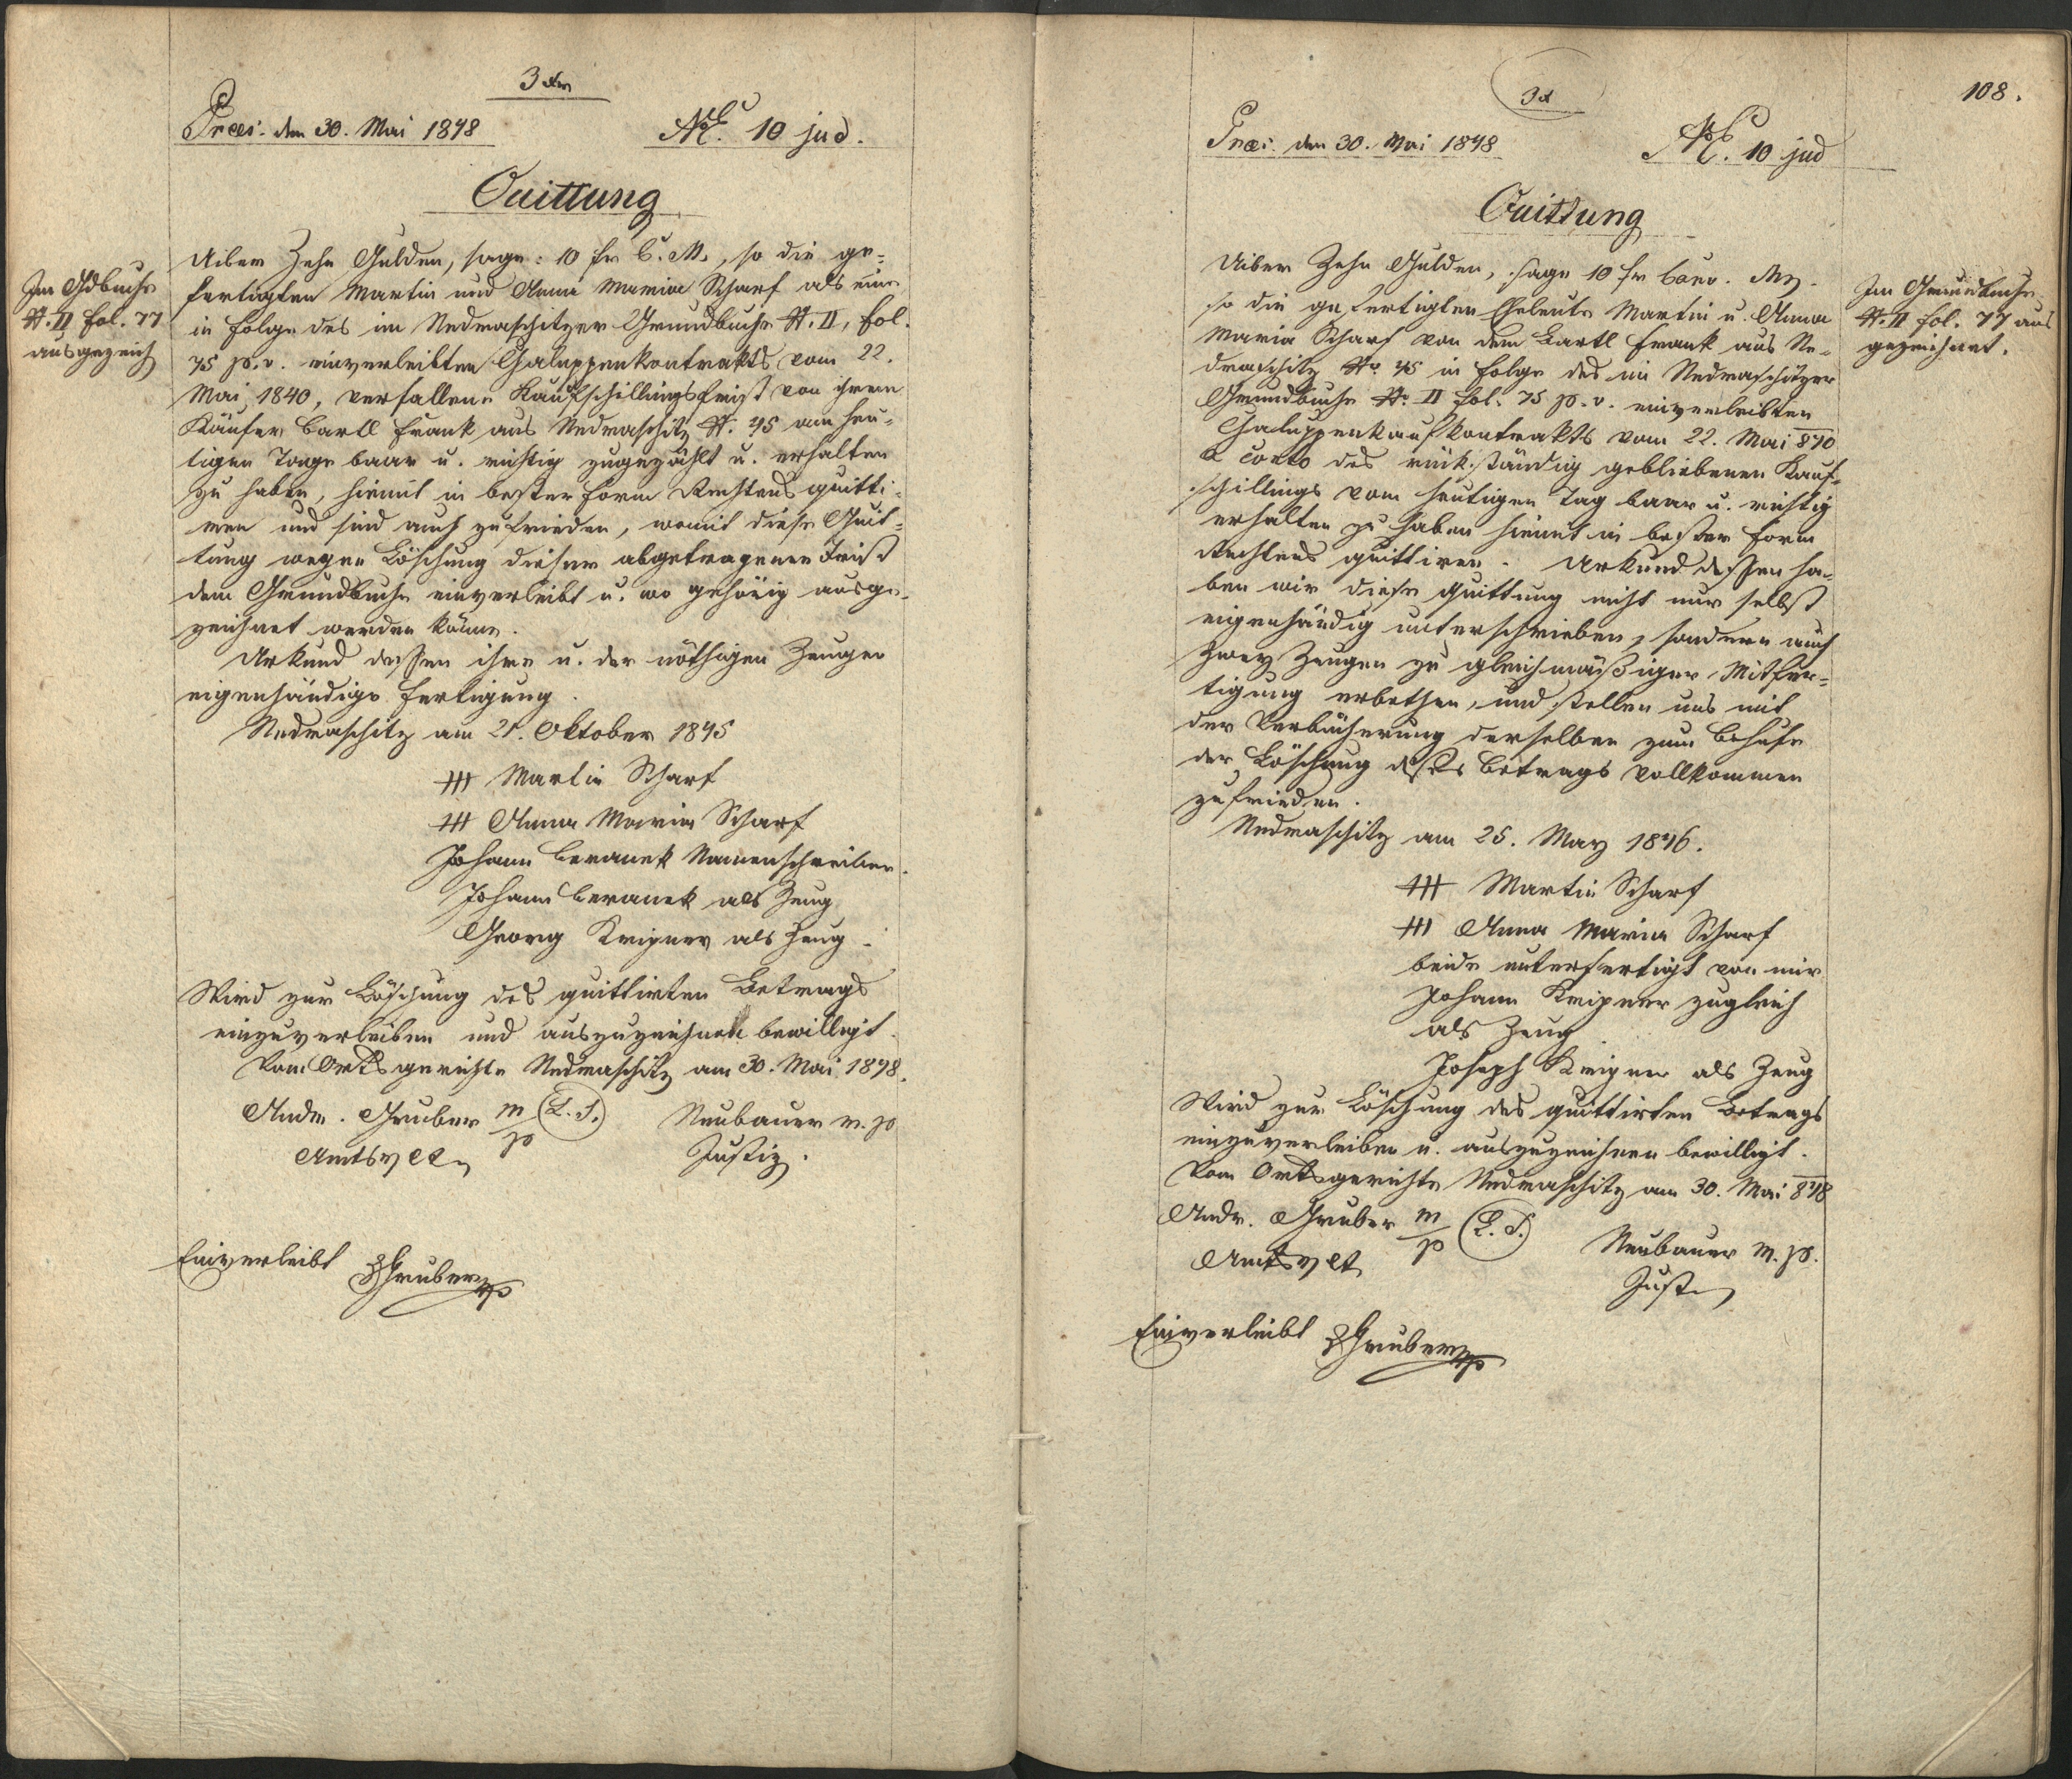 3 xr
Præs. den 30. Mai 1848
NE. 10 jud.
Quittung
Im Gdbuche
N. II fol. 77
ausgezeich
Uiber Zehn Gulden, sage: 10 fr C. M., so die ge-
fertigten Martin und Anna Maria Scharf als eine
in Folge des im Nedraschitzer Grundbuche N. II, fol.
75 p. v. einverleibten Chaluppenkontrakts vom 22.
Mai 1840, verfallene Kaufschillingsfrist von ihrem
Käufer Bartl Frank aus Nedraschitz N. 45 am heu-
tigen Tage baar u. richtig zugezählt u. erhalten
zu haben, hiemit in bester Form Rechtens quitti-
ren und sind auch zufrieden, womit diese Quit-
tung wegen Löschung dieser abgetragenen Frist
dem Grundbuche einverleibt u. wo gehörig ausge-
zeichnet werden könne.
Urkund dessen ihre u. der nöthigen Zeugen
eigenhändige Fertigung.
Nedraschitz am 21. Oktober 1845
+++ Martin Scharf
+++ Anna Maria Scharf
Johann Beranek Namenschreiber.
Johann Beranek als Zeug
Georg Kripner als Zeug.
Wird zur Löschung des quittirten Betrags
einzuverleiben und auszuzeichnen bewilligt.
Vom Ortsgerichte Nedraschitz am 30. Mai 1848.
Andr. Gruber m/p (L. S.)
Amtsvlt
Neubauer m. p
Justiz.
Einverleibt Gruber mp
108.
3 x
Præs. den 30. Mai 1848
NE. 10 jud
Quittung
Im Grundbuche
N. II fol. 77 aus
gezeichnet.
Uiber Zehn Gulden, sage 10 fr Conv. Mz.
so die gefertigten Eheleute Martin u. Anna
Maria Scharf von dem Bartl Frank aus Ne-
draschitz No 45 in Folge des im Nedraschitzer
Grundbuche No II fol. 75 p. v. einverleibten
Chaluppenkaufkontrakts vom 22. Mai 840
a conto des rükständig gebliebenen Kauf-
schillings vom heutigen Tag baar u. richtig
erhalten zu haben hiemit in bester Form
Rechtens quittiren. Urkund dessen ha-
ben wir diese Quittung nicht nur selbst
eigenhändig unterschrieben, sondern auch
zwey Zeugen zu gleichmäßiger Mitfer-
tigung erbethen, und stellen uns mit
der Verbücherung derselben zum Behufe
der Löschung dieses Betrags vollkommen
zufrieden.
Nedraschitz am 25. May 1846.
+++ Martin Scharf
+++ Anna Maria Scharf
beide unterfertigt von mir
Johann Kripner zugleich
als Zeug
Joseph Kripner als Zeug
Wird zur Löschung des quittirten Betrags
einzuverleiben u. auszuzeichnen bewilligt.
Vom Ortsgerichte Nedraschitz am 30. Mai 848
Andr. Gruber m/p (L. S.)
Amtsvlt
Neubauer m. p.
Just
Einverleibt Gruber mp